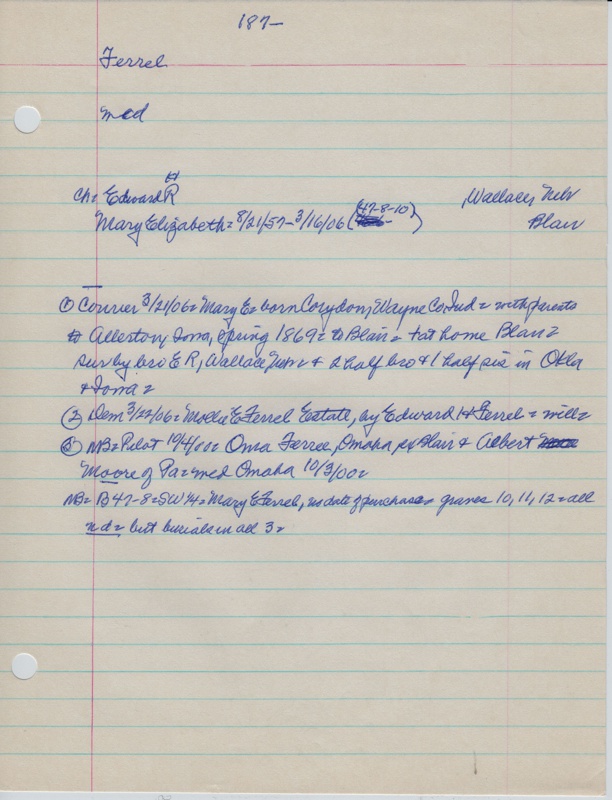 187-
Ferrel
md
H
ch= Edward R Wallace, Neb
47-8-10
Mary Elizabeth= 8/21/57-3/16/06 ( ) Blair
① Courier 3/21/06= Mary E= born Corydon, Wayne Co, Ind= with parents
to Allerton, Iowa, spring 1869= to Blair= + at home Blair=
sur by bro E R, Wallace, + 2 half bro + 1 half sis in Okla
+ Iowa=
② Dem 3/22/06= Mollie E Ferrel Estate, by Edward H Ferrel= will=
③ NB= Pilot 10/4/00= Oma Ferree, Omaha, ex Blair + Albert
Moore of Pa= med Omaha 10/3/00=
NB= B47-8= SW 1/4= Mary E Ferrel, no date of purchase= graves 10, 11, 12= all
nd= but burials in all 3=